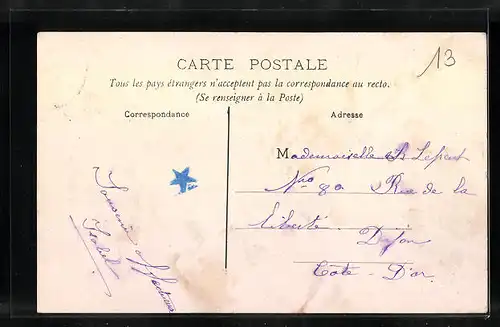 CARTE POSTALE
13
Tous les pays étrangers n'acceptent pas la correspondance au recto.
(Se renseigner à la Poste)
Correspondance
Adresse
Souvenir affectueux
Isabel
Mademoiselle
80 Rue de la
Liberté. Dijon
Côte-D'or.